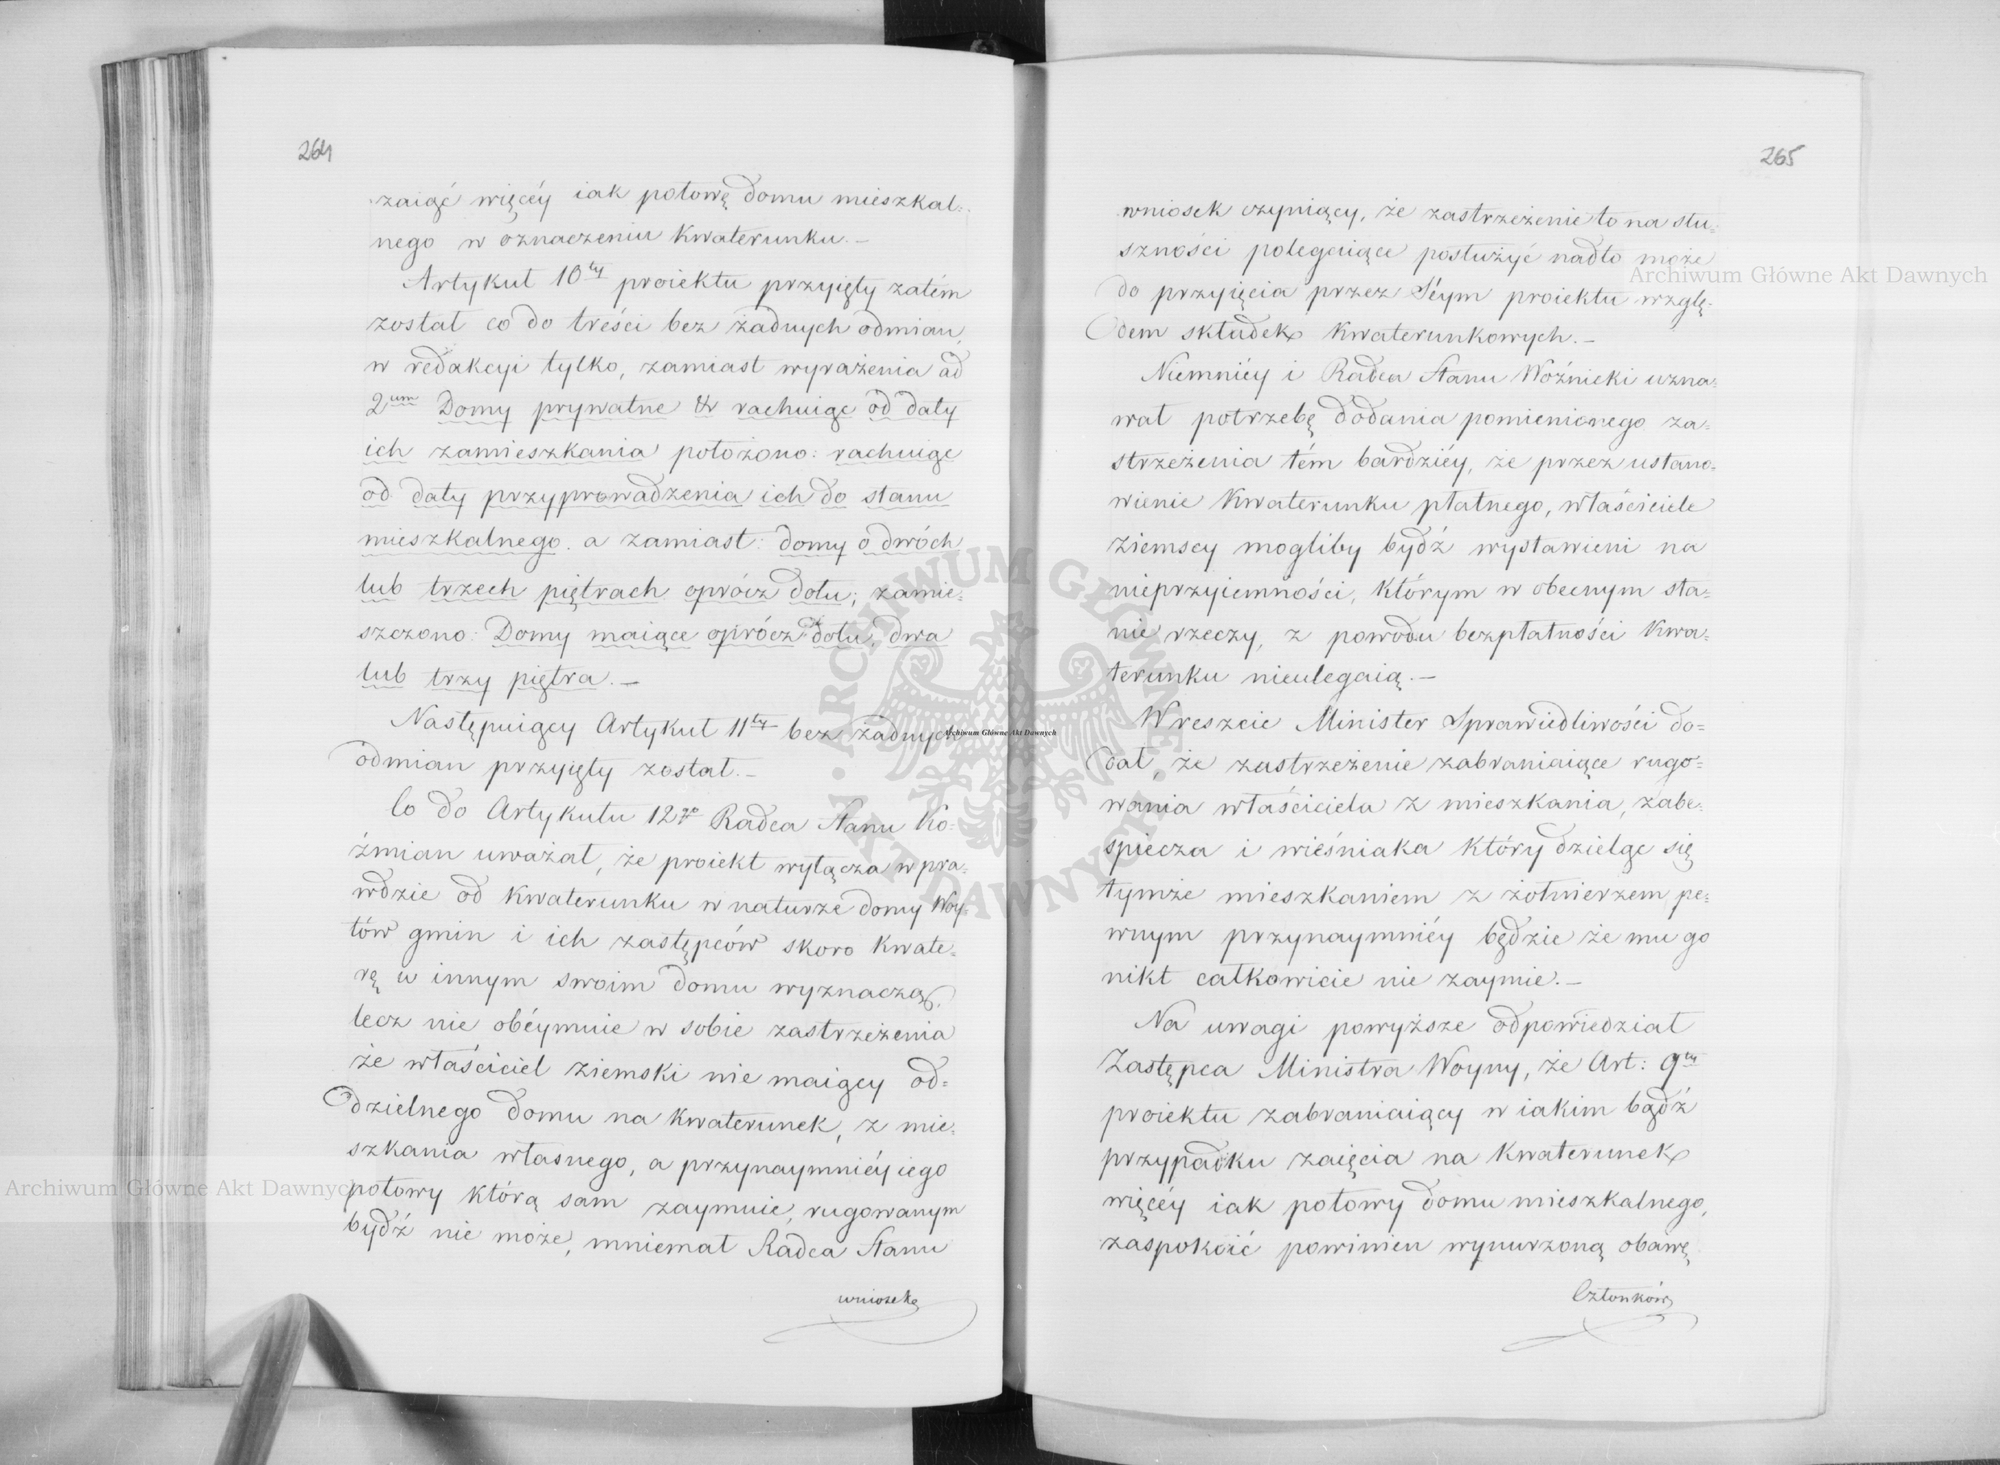 264
zaiąć więcéy iak połowę domu mieszkal=
nego w oznaczeniu Kwaterunku.—
Artykuł 10ty proiektu przyięty zatém
został co do treści bez żadnych odmian,
w redakcyi tylko, zamiast wyrażenia ad
2um Domy prywatne &r rachuiąc od daty
ich zamieszkania położono: rachuiąc
od daty przyprowadzenia ich do stanu
mieszkalnego. a zamiast: domy o dwóch
lub trzech piętrach oprócz dołu; zamie=
szczono: Domy maiące oprócz dołu, dwa
lub trzy piętra.—
Następuiący Artykuł 11ty bez żadnych
odmian przyięty został.—
Co do Artykułu 12go Radca Stanu Ko=
źmian uważał, że proiekt wyłącza w pra=
wdzie od Kwaterunku w naturze domy Woy=
tów gmin i ich zastępców skoro Kwate=
rę w innym swoim domu wyznaczą,
lecz nie obéymuie w sobie zastrzeżenia
że właściciel ziemski nie maiący od=
dzielnego domu na Kwaterunek, z mie=
szkania własnego, a przynaymniéy iego
połowy którą sam zaymuie, rugowanym
bydź nie może, mniemał Radca Stanu
wniosek
265
wniosek czyniący, że zastrzeżenie to na słu=
szności polegaiące posłużyć nadto może
do przyięcia przez Séym proiektu wzglę=
dem składek Kwaterunkowych.—
Niemniéy i Radca Stanu Woźnicki uzna=
wał potrzebę dodania pomienionego za=
strzeżenia tém bardziéy, że przez ustano=
wienie Kwaterunku płatnego, właściciele
ziemscy mogliby bydź wystawieni na
nieprzyiemności, którym w obecnym sta=
nie rzeczy, z powodu bezpłatności Kwa=
terunku nieulegaią.—
Wreszcie Minister Sprawiedliwości do=
dał, że zastrzeżenie zabraniaiące rugo=
wania właściciela z mieszkania, zabe=
spiecza i wieśniaka który dzieląc się
tymże mieszkaniem z żołnierzem pe=
wnym przynaymniéy będzie że mu go
nikt całkowicie nie zaymie.—
Na uwagi powyższe odpowiedział
Zastępca Ministra Woyny, że Art: 9ty
proiektu zabraniaiący w iakim bądź
przypadku zaięcia na Kwaterunek
więcéy iak połowy domu mieszkalnego,
zaspokoić powinien wynurzoną obawę
Członków
Archiwum Główne Akt Dawnych
Archiwum Główne Akt Dawnych
Archiwum Główne Akt Dawnych
ARCHIWUM GŁÓWNE AKT DAWNYCH